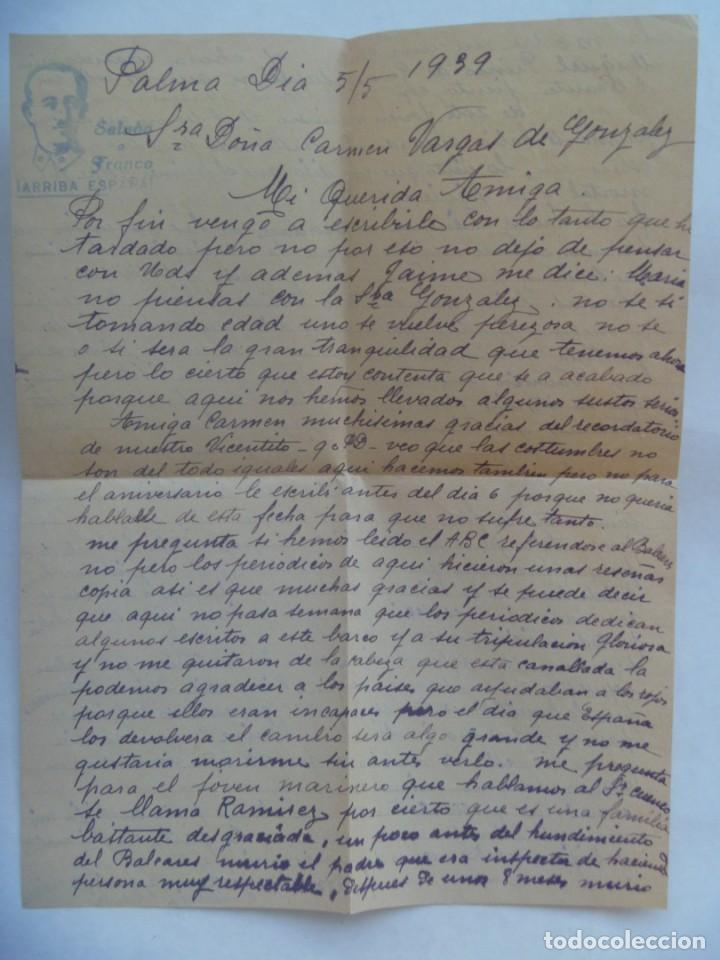 Saludo
a
Franco
¡ARRIBA ESPAÑA!
Palma Dia 5/5 1939
Sra Doña Carmen Vargas de Gonzalez
Mi Querida Amiga
Por fin vengo a escribirle con lo tanto que he
tardado pero no por eso no dejo de pensar
con Vds y ademas Jaime me dice: Maria
no piensas con la Sra Gonzalez. no se si
tomando edad uno se vuelve perezosa no se
o si sera la gran tranquilidad que tenemos ahora
pero lo cierto que estoy contenta que se a acabado
porque aqui nos hemos llevados algunos sustos serios
Amiga Carmen muchisimas gracias del recordatorio
de nuestro Vicentito - q.
veo que las costumbres no
son del todo iguales aqui hacemos tambien pero no para
el aniversario le escribi antes del dia 6 porque no queria
hablalle de esta fecha para que no sufre tanto.
me pregunta si hemos leido el ABC referendose al Balears
no pero los periodicos de aqui hicieron unas reseñas
copia asi es que muchas gracias y se puede decir
que aqui no pasa semana que los periodicos dedican
algunos escritos a este barco y a su tripulacion gloriosa
y no me quitaron de la cabeza que esta canallada la
podemos agradecer a los paises que ayudaban a los rojos
porque ellos eran incapaces pero el dia que España
los devolvera el cambio sera algo grande y no me
gustaria morirme sin antes verlo. me pregunta
para el joven marinero que hablamos al Sr
se llama Ramirez por cierto que es una familia
bastante desgraciada, un poco antes del hundimiento
del Baleares murio el padre que era inspector de haciend
persona muy respectable, despues de unos 8 meses murio